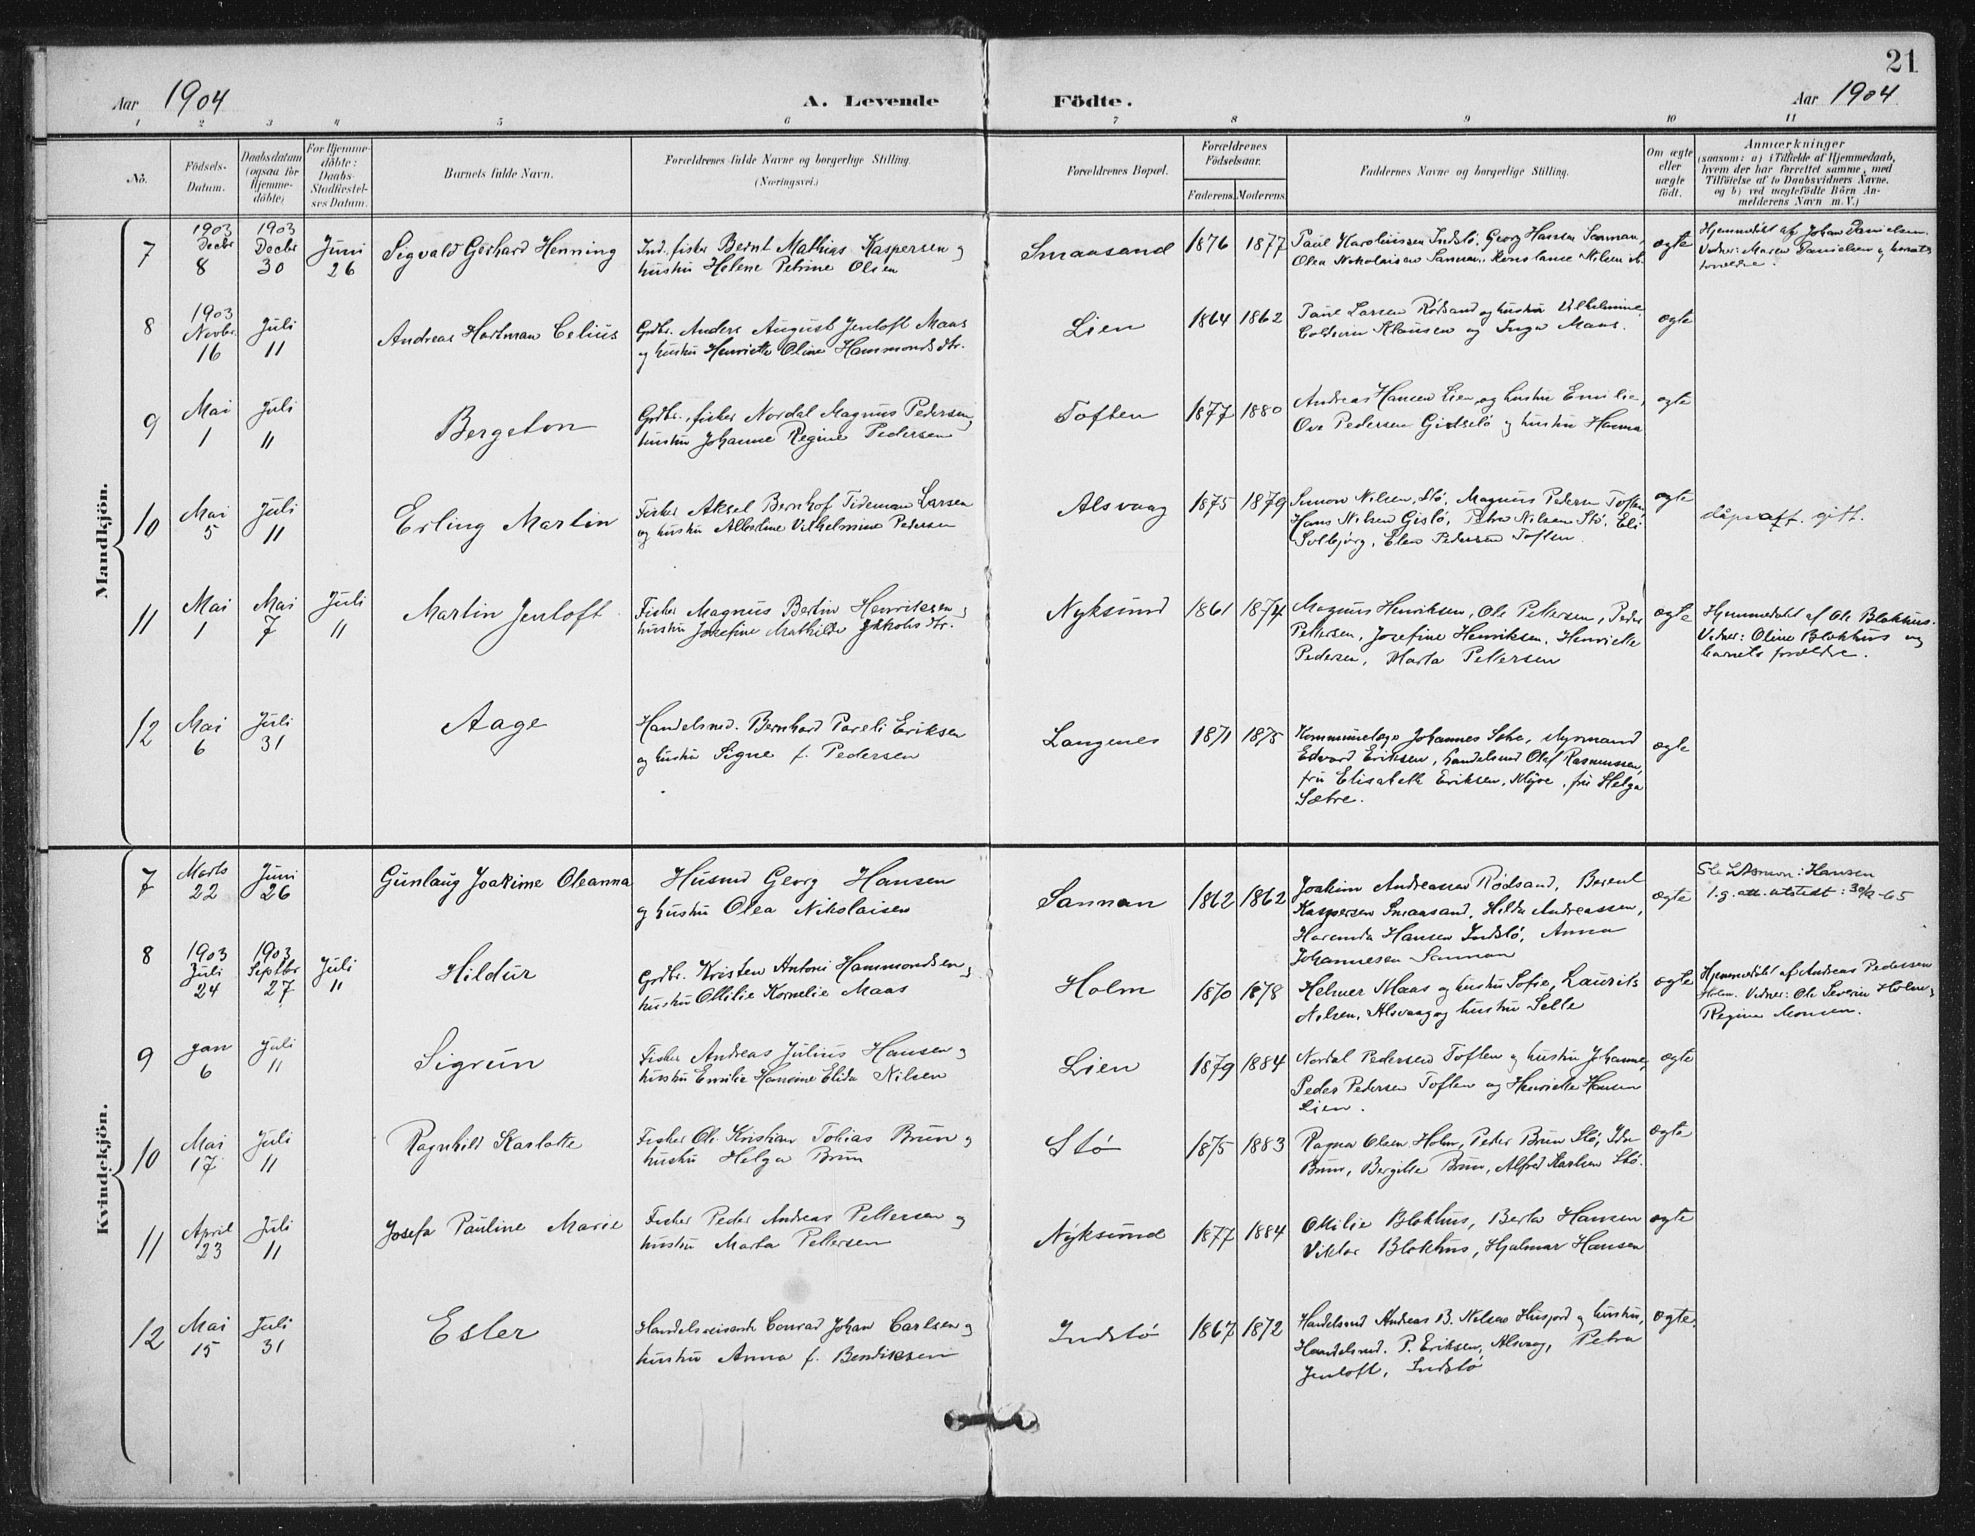 21
Aar 1904
A. Levende Födte.
Aar 1904
1 2 3 4 5 6 7 8 9 10 11
No.
Födsels-
Datum.
Daabsdatum
(ogsaa for
Hjemme-
döbte)
For Hjemme-
döbte:
Daabs-
Stadfæstel-
ses Datum.
Barnets fulde Navn.
Forældrenes fulde Navne og borgerlige Stilling.
(Næringsvei.)
Forældrenes Bopæl.
Forældrenes
Födselsaar.
Faderens
Moderens
Faddernes Navne og borgerlige Stilling.
Om ægte
eller
uægte
födt.
Anmærkninger
(saasom: a) i Tilfælde af Hjemmedaab,
hvem der har forrettet samme, med
Tilföielse af to Daabsvidners Navne,
og b) ved uægtefödte Börn An-
melderens Navn m. V.)
Mandkjön.
7
1903
Decbr
8
1903
Decbr
30
Juni
26
Sigvald Gerhard Henning
Ind. fisker Bernt Mathias Kaspersen og
hustru Helene Petrine Olsen
Smaasand
1876
1877
Paul Karoliussen Indstö, Georg Hansen Sannan,
Olea Nikolaisen Sannan, Konstanse Nilsen
ægte
Hjemmedøbt af Johan Danielsen.
Vidner: Maren Danielsen og barnets
forældre.
8
1903
Novbr.
16
Juli
11
Andreas Hartman Celius
Grdbr. Anders August Jentoft Maas
og hustru Henriette Oline Hammondsdtr.
Lien
1864
1862
Paul Larsen Rödsand og hustru Vilhelmine,
Klausen og Inga Maas.
ægte
9
Mai
1
Juli
11
Bergeton
Grdbr., fisker Nordal Magnus Pedersen,
hustru Johanne Regine Pedersen
Toften
1877
1880
Andreas Hansen Lien og hustru Emilie,
Ove Pedersen Gidslö og hustru Hanna
ægte
10
Mai
5
Juli
11
Erling Martin
Fisker Aksel Bernhof Tideman Larsen
og hustru Albertine Vilhelmine Pedersen
Alsvaag
1875
1879
Simon Nilsen, Stö, Magnus Pedersen Toften,
Hans Nilsen Gislö, Petra Nilsen Stö, Eli
Solbjörg, Elen Pedersen Toften.
ægte
dåpsatt. gitt.
11
Mai
1
Mai
7
Juli
11
Martin Jentoft
Fisker Magnus Bertin Henriksen og
hustru Josefine Mathilde Jakobsdtr.
Nyksund
1861
1874
Magnus Henriksen, Ole Pettersen, Peder
Pettersen, Josefine Henriksen, Henriette
Pedersen, Marta Pettersen
ægte
Hjemmedøbt af Ole Blokhus.
Vidner: Oline Blokhus og
barnets forældre.
12
Mai
6
Juli
31
Aage
Handelsmd. Bernhard Pareli Eriksen
og hustru Signe f. Pedersen
Langenes
1871
1875
Kommunelæge Johannes
Edvard Eriksen, handelsmd Olaf Rasmussen,
fru Elisabeth Eriksen, Myre, fru Helga
Sætre.
ægte
Kvindekjön.
7
Marts
22
Juni
26
Gunlaug Joakime Oleanna
Husmd Georg Hansen
og hustru Olea Nikolaisen
Sannan
1862
1862
Joakim Andreassen Rödsand, Berent
Kaspersen Smaasand, Hilda Andreassen,
Harenda Hansen Indstö, Anna
Johannesen Sannan
ægte
Hansen
l.g. att. utstedt: 30/9-65
8
1903
Juli
24
1903
Septbr
27
Juli
11
Hildur
Grdbr. Kristen Antoni Hammondsen,
hustru Ottilie Kornelie Maas
Holm
1870
1878
Helmer Maas og hustru Sofie, Laurits
Nilsen, Alsvaag og hustru Selle
ægte
Hjemmedøbt af Andreas Pedersen
Holm. Vidner: Ole Severin Holm og
Regine Monsen.
9
Jan
6
Juli
11
Sigrun
Fisker Andreas Julius Hansen og
hustru Emilie Hansine Elida Nilsen
Lien
1879
1884
Nordal Pedersen Toften og hustru Johanne,
Peder Pedersen Toften og Henriette Hansen
Lien.
ægte
10
Mai
17
Juli
11
Ragnhild Karlotte
Fisker Ole Kristian Tobias Brun og
hustru Helga Brun
Stö
1875
1883
Ragna Olsen Holm, Peter Brun Stö, Ida
Brun, Bergitte Brun, Alfred Karlsen Stö.
ægte
11
April
23
Juli
11
Josefa Pauline Marie
Fisker Peder Andreas Pettersen og
hustru Marta Pettersen
Nyksund
1877
1884
Ottilie Blokhus, Berta Hansen
Viktor Blokhus, Hjalmar Hansen
ægte
12
Mai
15
Juli
31
Ester
Handelsreisende Conrad Johan Carlsen og
hustru Anna f. Bendiksen
Indstö
1867
1872
Handelsmd Andreas B. Nilsen Husjord og hustru,
Handelsmd. P. Eriksen, Alsvaag, Petra
Jentoft, Indstö
ægte.